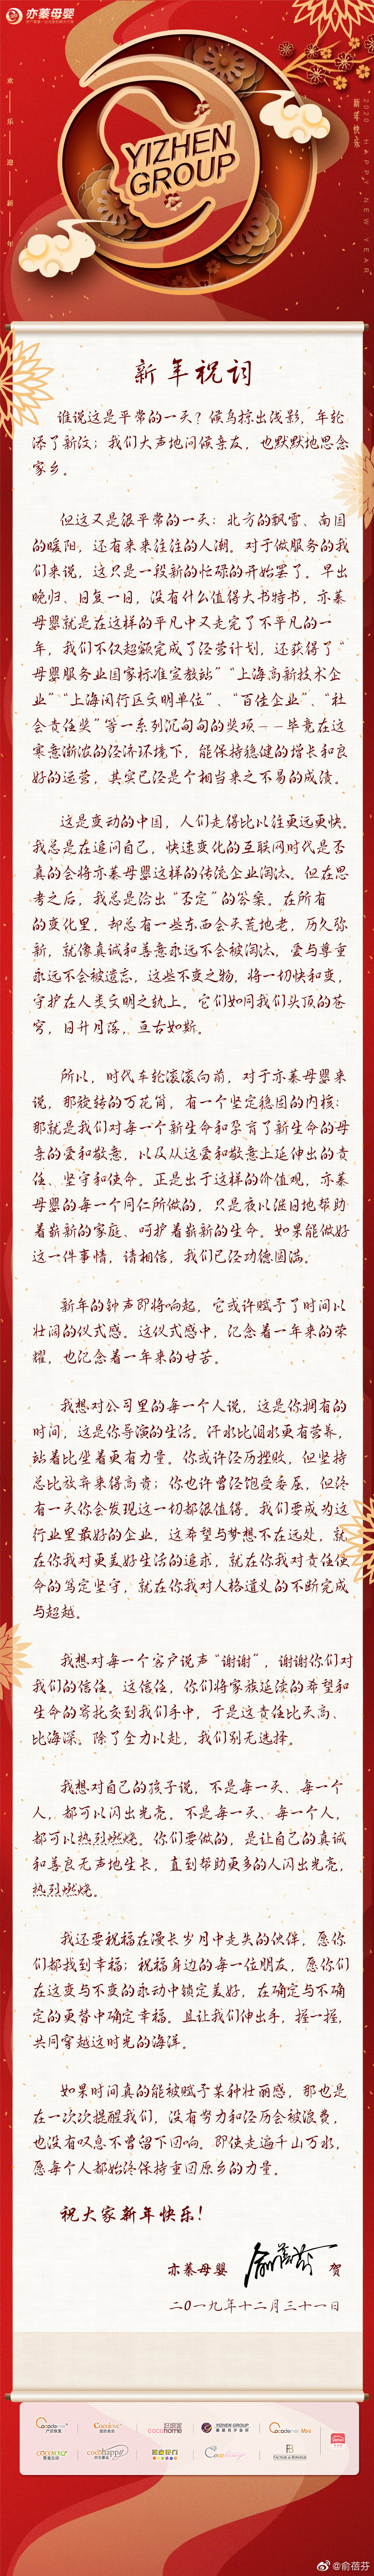 亦蓁母婴
欢乐迎新年
新年快乐
2020 HAPPY NEW YEAR
YIZHEN
GROUP
新年祝词
谁说这是平常的一天？候鸟掠出浅影，年轮
添了新纹；我们大声地问候亲友，也默默地思念
家乡。
但这又是很平常的一天：北方的飘雪、南国
的暖阳，还有来来往往的人潮。对于做服务的我
们来说，这只是一段新的忙碌的开始罢了。早出
晚归、日复一日，没有什么值得大书特书，亦蓁
母婴就是在这样的平凡中又走完了不平凡的一
年，我们不仅超额完成了经营计划，还获得了“
母婴服务业国家标准宣教站”“上海高新技术企
业”“上海闵行区文明单位”、“百佳企业”、“社
会责任奖”等一系列沉甸甸的奖项——毕竟在这
寒意渐浓的经济环境下，能保持稳健的增长和良
好的运营，其实已经是个相当来之不易的成绩。
这是变动的中国，人们走得比以往更远更快。
我总是在追问自己，快速变化的互联网时代是否
真的会将亦蓁母婴这样的传统企业淘汰。但在思
考之后，我总是给出“否定”的答案。在所有
的变化里，却总有一些东西会天荒地老，历久弥
新，就像真诚和善意永远不会被淘汰，爱与尊重
永远不会被遗忘，这些不变之物，将一切快和变，
守护在人类文明之轨上。它们如同我们头顶的苍
穹，日升月落，亘古如斯。
所以，时代车轮滚滚向前，对于亦蓁母婴来
说，那旋转的万花筒，有一个坚定稳固的内核：
那就是我们对每一个新生命和孕育了新生命的母
亲的爱和敬意，以及从这爱和敬意上延伸出的责
任、坚守和使命。正是出于这样的价值观，亦蓁
母婴的每一个同仁所做的，只是夜以继日地帮助
着崭新的家庭、呵护着崭新的生命。如果能做好
这一件事情，请相信，我们已经功德圆满。
新年的钟声即将响起，它或许赋予了时间以
壮阔的仪式感。这仪式感中，纪念着一年来的荣
耀，也纪念着一年来的甘苦。
我想对公司里的每一个人说，这是你拥有的
时间，这是你导演的生活。汗水比泪水更有营养，
站着比坐着更有力量。你或许经历挫败，但坚持
总比放弃来得高贵；你也许曾经饱受委屈，但终
有一天你会发现这一切都很值得。我们要成为这
行业里最好的企业，这希望与梦想不在远处，就
在你我对更美好生活的追求，就在你我对责任使
命的笃定坚守，就在你我对人格道义的不断完成
与超越。
我想对每一个客户说声“谢谢”，谢谢你们对
我们的信任。这信任，你们将家族延续的希望和
生命的寄托交到我们手中，于是这责任比天高、
比海深，除了全力以赴，我们别无选择。
我想对自己的孩子说，不是每一天、每一个
人，都可以闪出光亮。不是每一天、每一个人，
都可以热烈燃烧。你们要做的，是让自己的真诚
和善良无声地生长，直到帮助更多的人闪出光亮，
热烈燃烧。
我还要祝福在漫长岁月中走失的伙伴，愿你
们都找到幸福；祝福身边的每一位朋友，愿你们
在这变与不变的永动中锁定美好，在确定与不确
定的更替中确定幸福。且让我们伸出手，握一握，
共同穿越这时光的海洋。
如果时间真的能被赋予某种壮丽感，那也是
在一次次提醒我们，没有努力和经历会被浪费，
也没有叹息不曾留下回响。即使走遍千山万水，
愿每个人都始终保持重回原乡的力量。
祝大家新年快乐！
亦蓁母婴 俞蓓芬 贺
二〇一九年十二月三十一日
YIZHEN GROUP
cocohome
cocohappy
@俞蓓芬